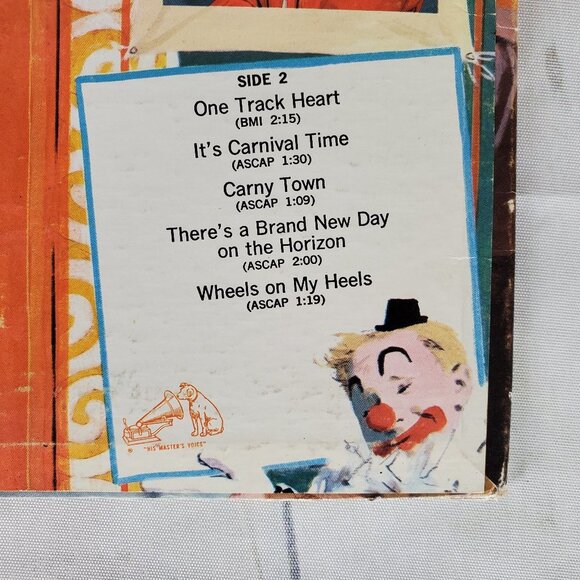 SIDE 2
One Track Heart
(BMI 2:15)
It's Carnival Time
(ASCAP 1:30)
Carny Town
(ASCAP 1:09)
There's a Brand New Day
on the Horizon
(ASCAP 2:00)
Wheels on My Heels
(ASCAP 1:19)
®
"HIS MASTER'S VOICE"